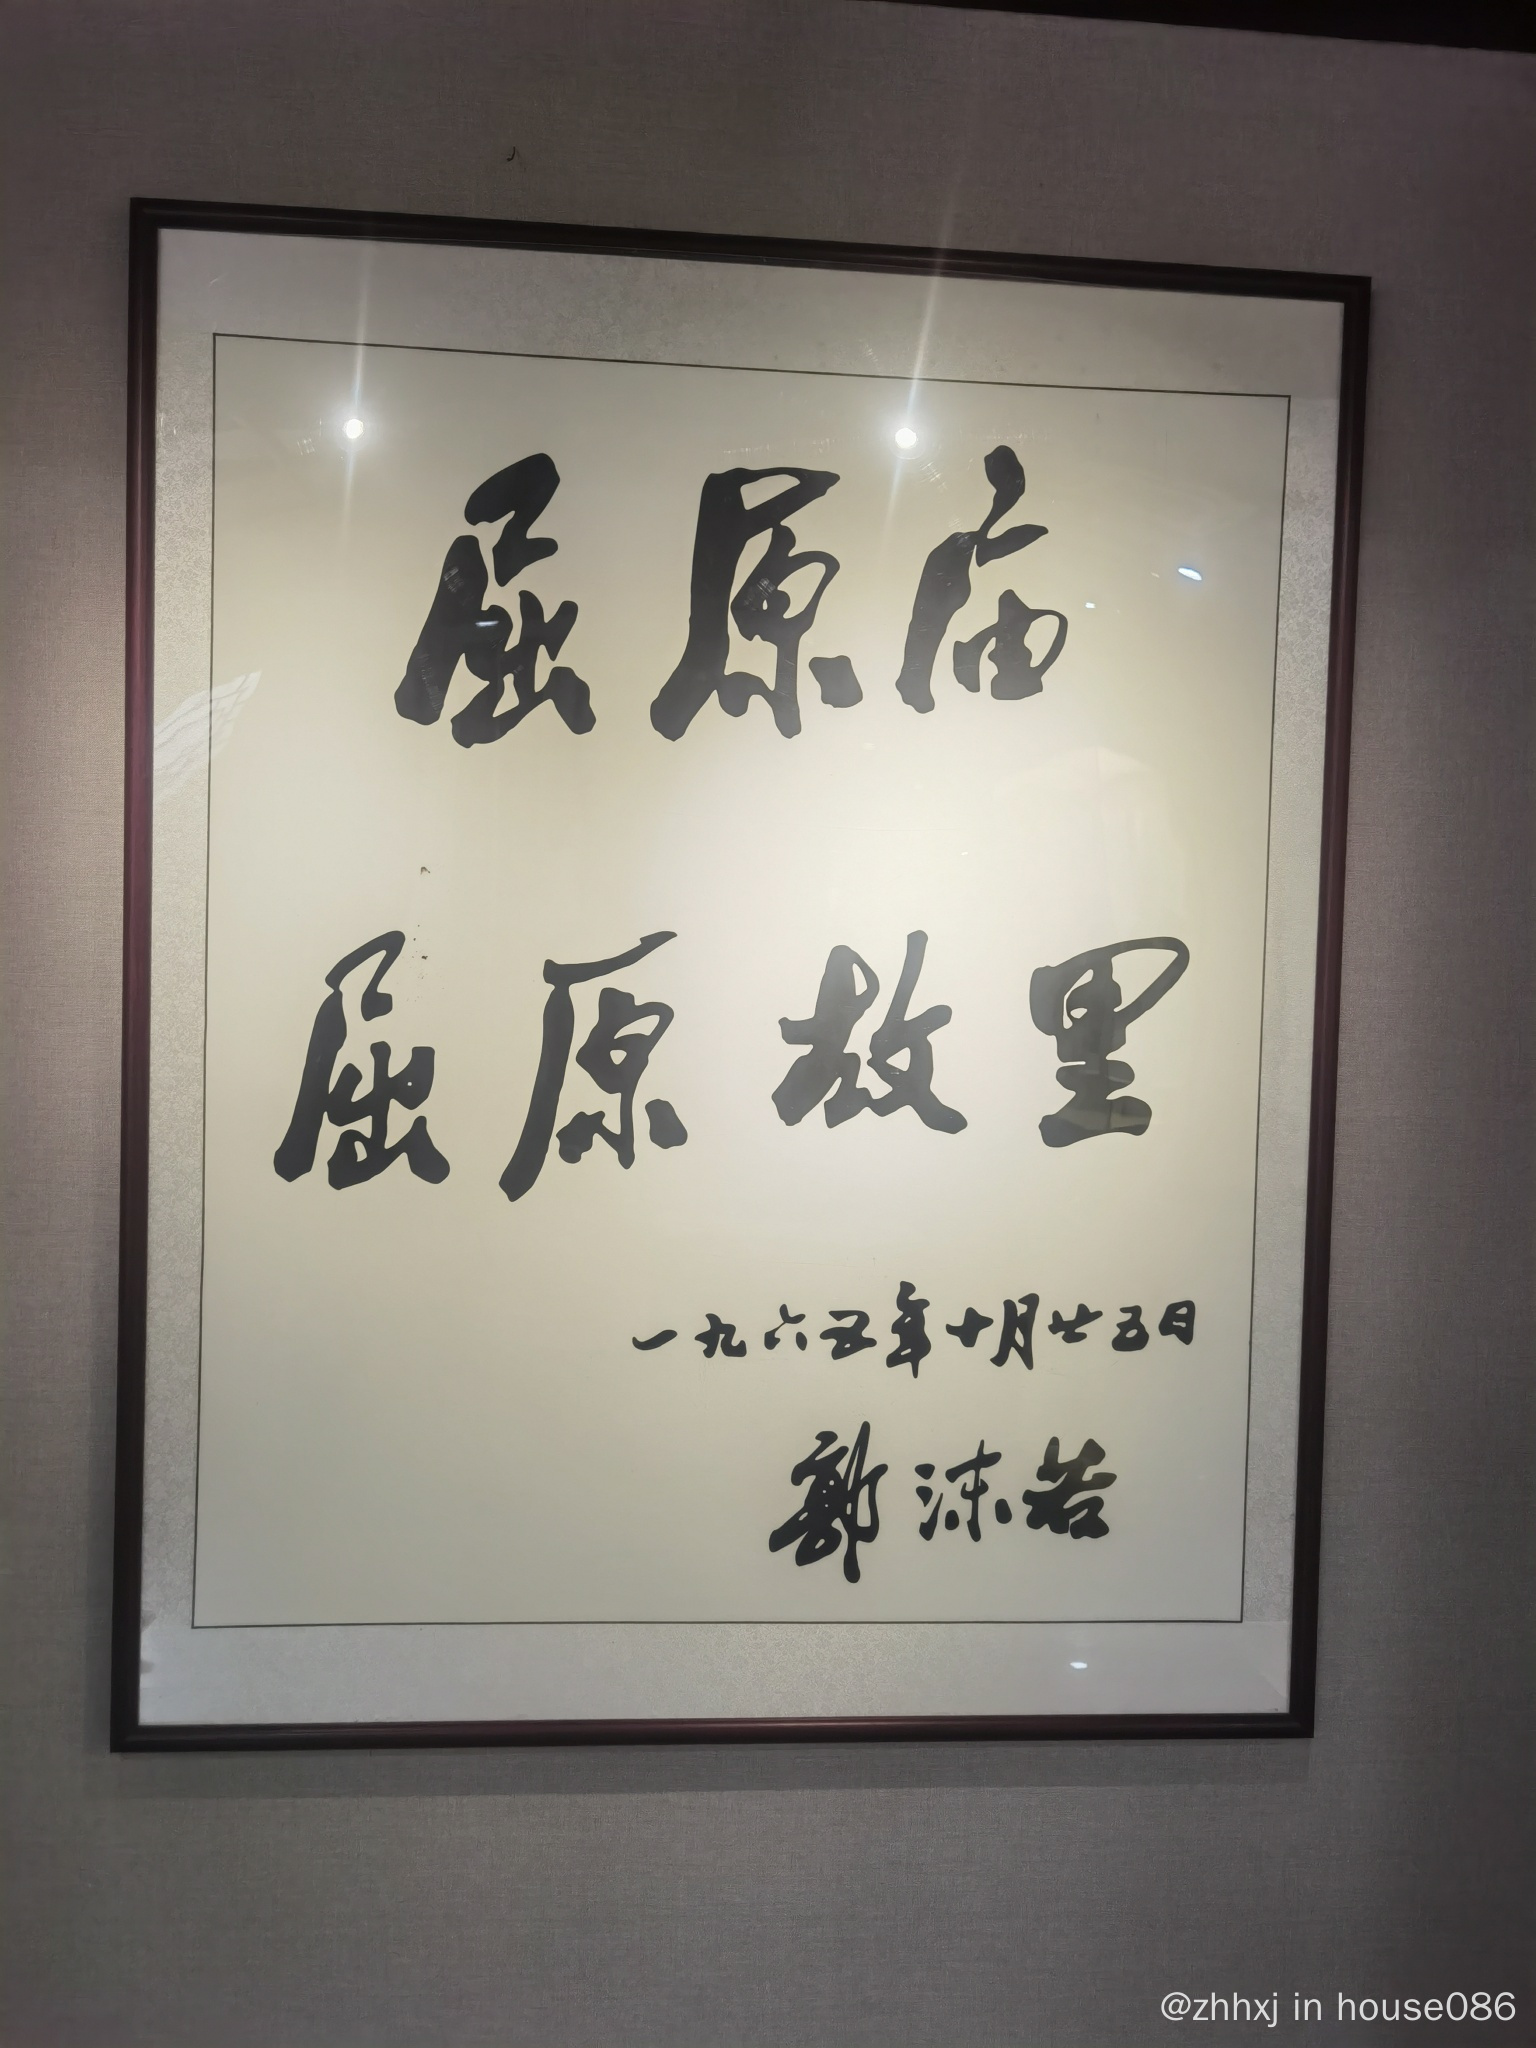 屈原庙
屈原故里
一九六五年十月廿五日
郭沫若
@zhhxj in house086